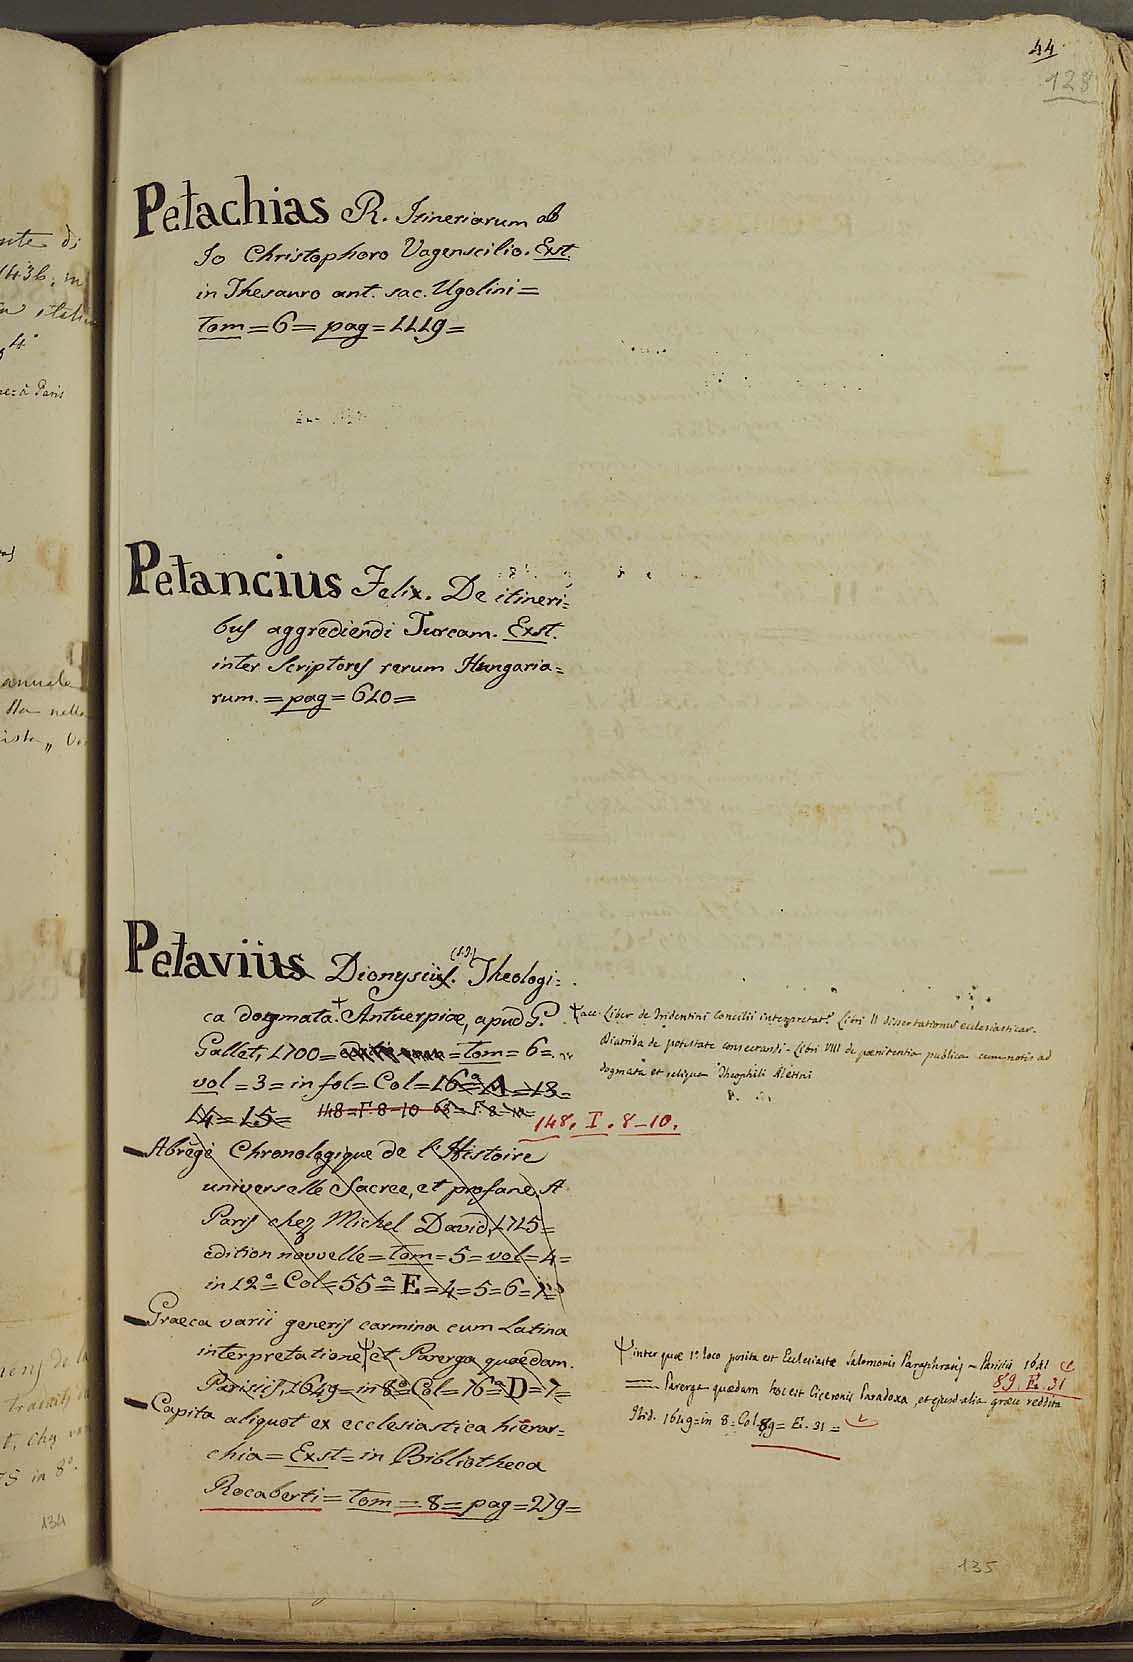 44
128
Petachias R. Itineriarum ab
Jo Christophoro Vagenseilio. Exst.
in Thesauro ant. sac. Ugolini =
tom = 6 = pag = 1119 =
Petancius Felix. De itineri=
bus aggrediendi Turcam. Exst.
inter Scriptores rerum Hungaria=
rum. = pag = 610 =
Petaviüs Dionysiüs. (S.I.) Theologi=
ca dogmata. † Antuerpiæ, apud G.
Gallet, 1700 = = tom = 6 =
vol = 3 = in fol = Col = 16ª = M = 13 =
14 = 15 = 148 = F. 8-10
148. I. 8-10.
† acc. Liber de Tridentini Concilii interpretat.e Libri II dissertationus ecclesiasticar.
Diatriba de potestate consecrandi - Libri VIII de pœnitentia publica cum notis ad
dogmata et reliqua Theophili Alethni
Abregé Chronologique de l'Histoire
universelle Sacree, et profane. A
Paris chez Michel David, 1715 =
edition nouvelle = tom = 5 = vol = 4 =
in 12º = Col = 55ª = E = 4 = 5 = 6 = 7 =
Graeca varii generis carmina cum Latina
interpretatione Ψ et Parerga quædam.
Parisiis, 1649 = in 8º = Col = 76ª = D = 7 =
Ψ inter quæ 1º loco posita est Ecclesiastæ Salomonis Paraphrasis - Parisiis 1641
89. E. 31
Parerga quædam hoc est Ciceronis Paradoxa, et ejusd alia græce reddita
Ibid. 1649 = in 8 = Col 89 = E. 31 =
Capita aliquot ex ecclesiastica hierar=
chia = Exst = in Bibliotheca
Rocaberti = tom = 8 = pag = 279 =
135
134